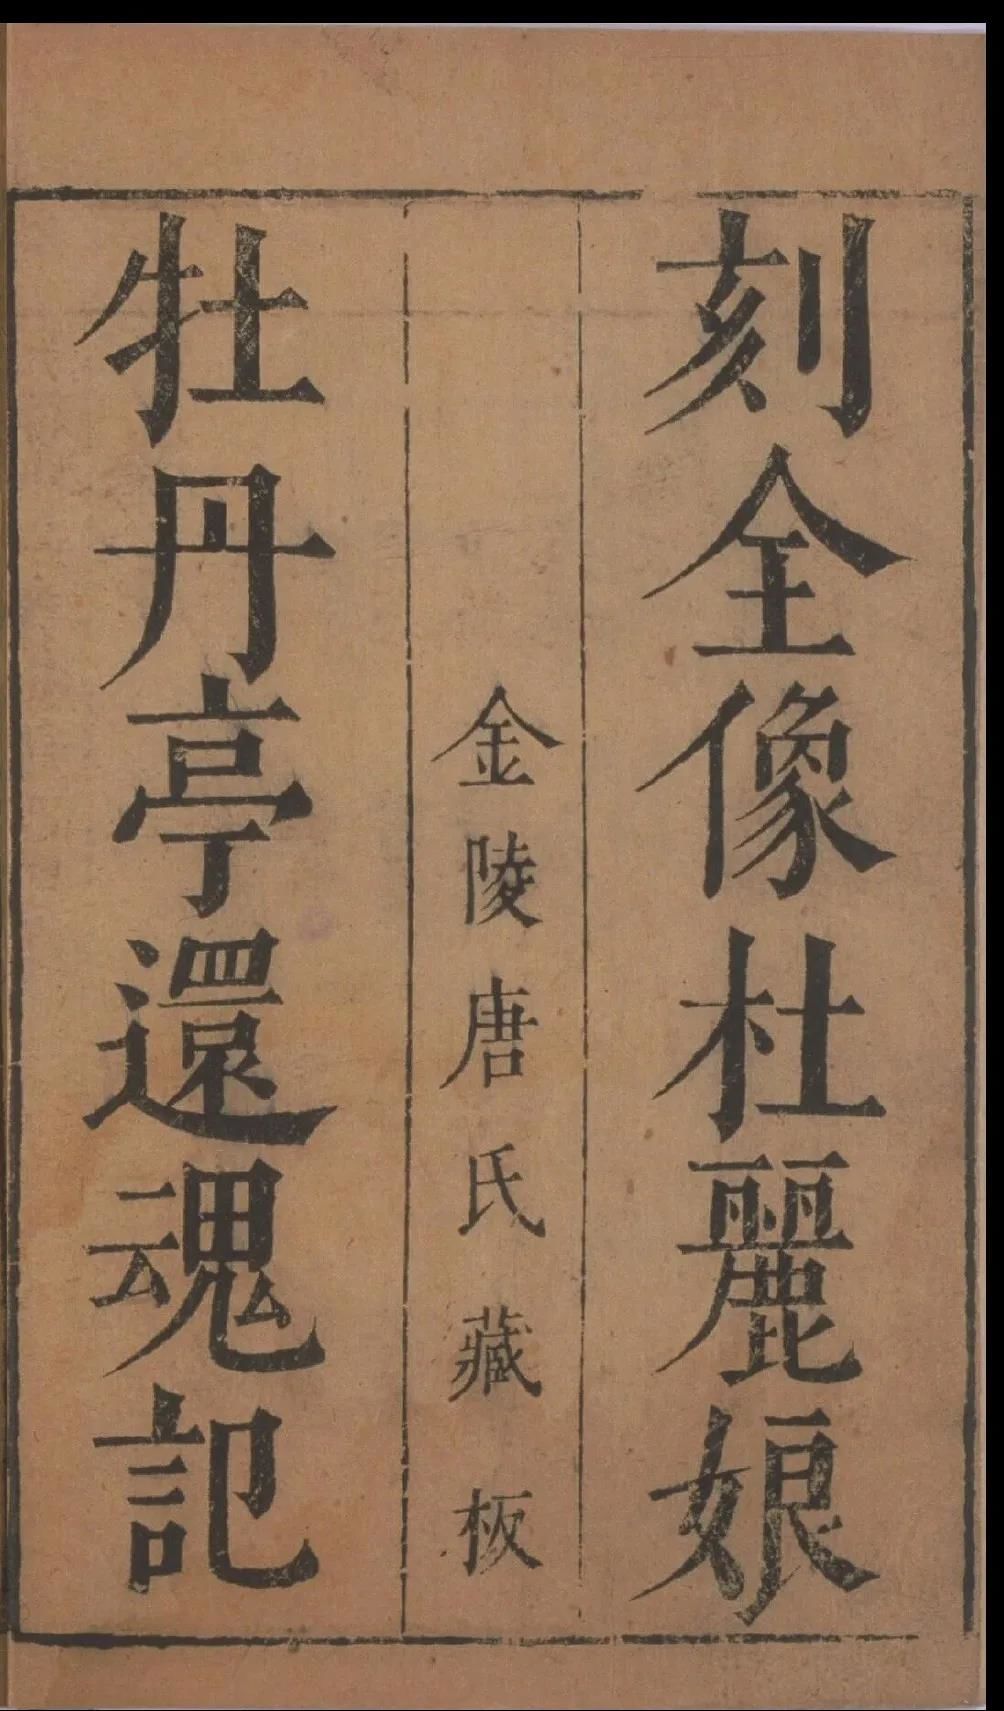 刻全像杜麗娘
金陵唐氏藏板
牡丹亭還魂記